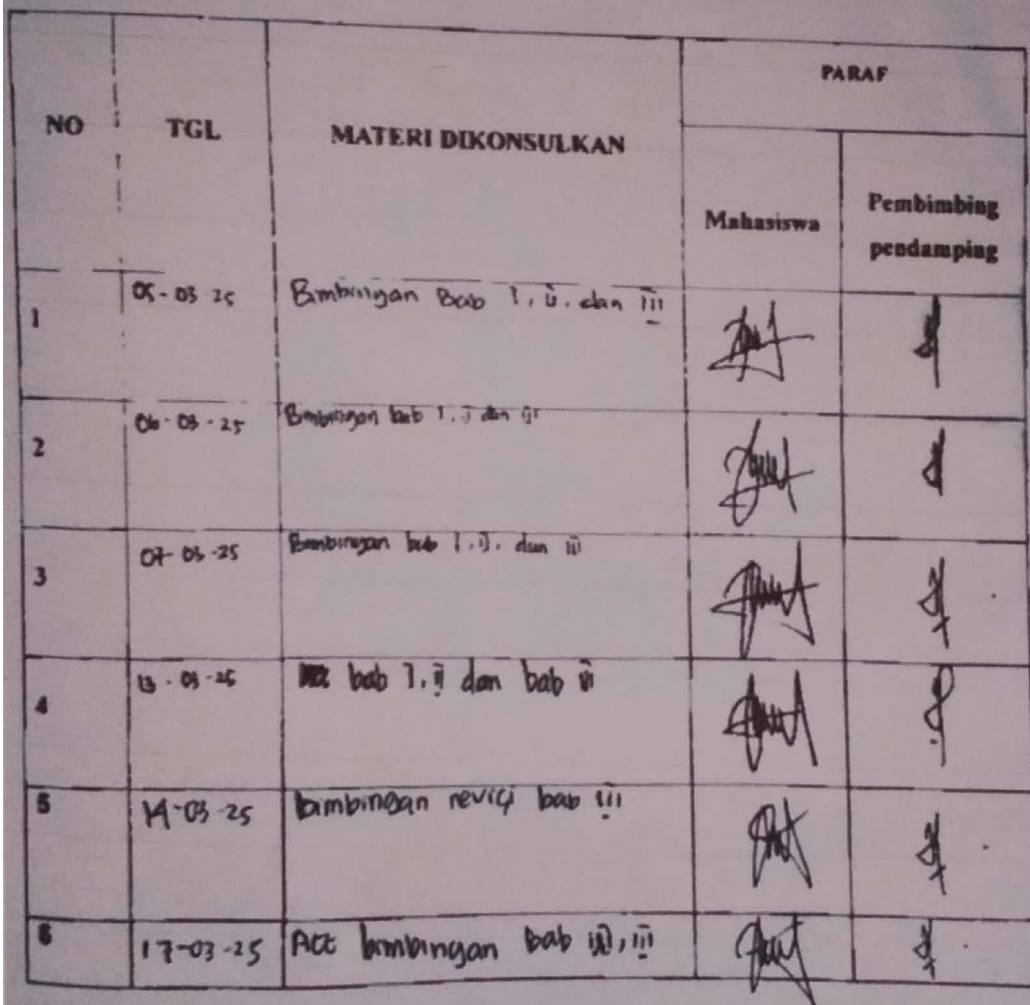 NO TGL MATERI DIKONSULKAN PARAF
Mahasiswa Pembimbing pendamping
1 05-03-25 Bimbingan Bab I, ii, dan iii
2 06-03-25 Bimbingan bab I, ii dan iii
3 07-03-25 Bimbingan bab I, ii, dan iii
4 13-03-25 bab I, ii dan bab iii
5 14-03-25 bimbingan revisi bab iii
6 17-03-25 Acc bimbingan bab iii